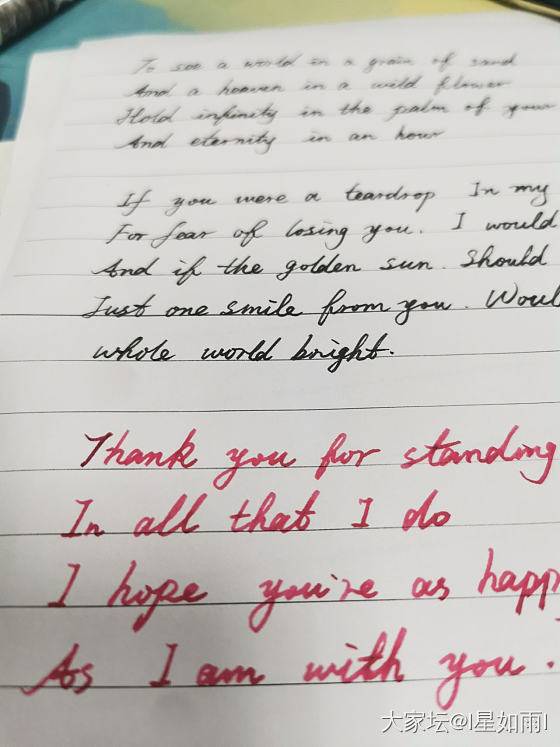 To see a world in a grain of sand
And a heaven in a wild flower
Hold infinity in the palm of your
And eternity in an hour
If you were a teardrop In my
For fear of losing you. I would
And if the golden sun. Should
Just one smile from you. Woul
whole world bright.
Thank you for standing
In all that I do
I hope you're as happy
As I am with you.
大家坛@|星如雨|